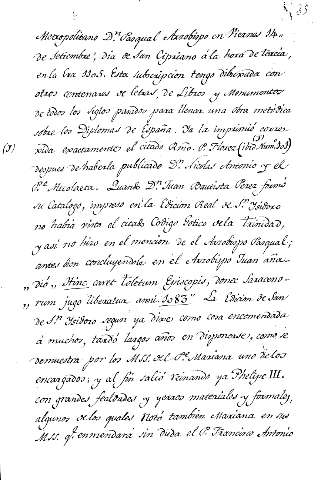 33
Metropolitano Dn. Pasqual Arzobispo en Viernes 14
de Setiembre, dia de San Cipriano á la hora de tercia,
en la Era 1105. Esta subscripcion tengo dibuxada con
otros centenares de letras, de Libros, y Monumentos
de todos los siglos parados para llevar una obra metodica
sobre los Diplomas de España. Ya la imprimió
exactamente el citado Rmo. P. Florez
(3)
despues de haberla publicado Dn. Nicolas Antonio y el
Pe. Quando Dn. Juan Bautista Perez formó
su Catalogo, impreso en la Edicion Real de Sn. Isidoro
no habia visto el citado Codigo Gotico de la Trinidad,
y asi no hizo en el mencion de el Arzobispo Pasqual;
antes bien concluyendole en el Arzobispo Juan aña-
dió „ Hinc caret Toletum Episcopis, donec Saraceno-
„ rum jugo liberatur anni 1083." La Edicion de San
de Sn. Isidoro segun ya dixe como cosa encomendada
á muchos, tardó largos años en disponerse, como se
demuestra por los M.SS. del Pe. Mariana uno de los
encargados; y al fin salió reinando ya Phelipe III.
con grandes fealdades y yerros materiales y formales,
algunos de los quales notó tambien Mariana en sus
M.SS. qe. enmendará sin duda el Pe. Francisco Antonio